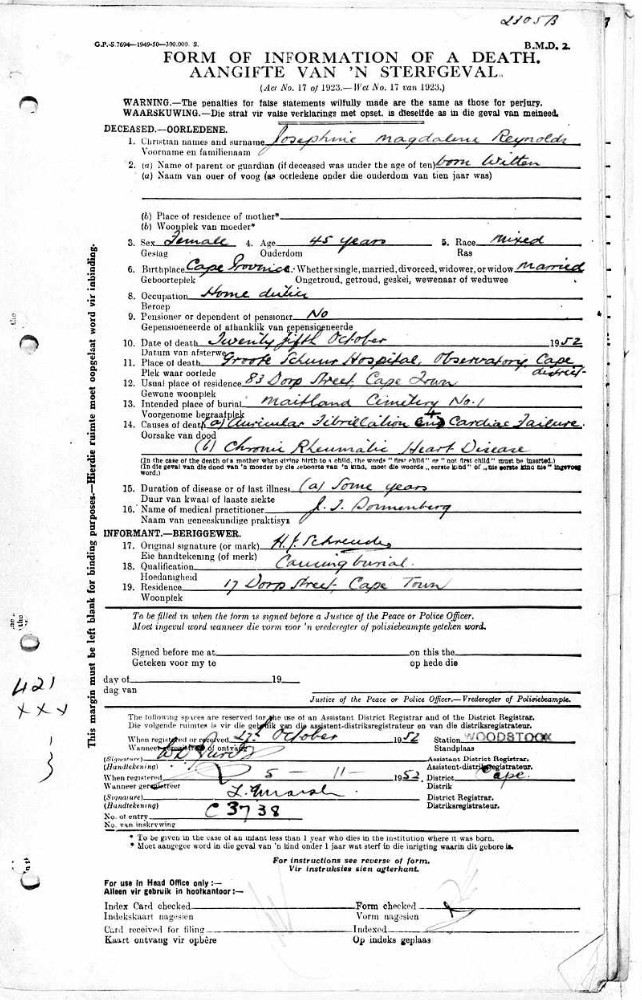 2305B
G.P.-S.7694—1949-50—300,000. S.
B.M.D. 2.
FORM OF INFORMATION OF A DEATH.
AANGIFTE VAN 'N STERFGEVAL.
(Act No. 17 of 1923.—Wet No. 17 van 1923.)
WARNING.—The penalties for false statements wilfully made are the same as those for perjury.
WAARSKUWING.—Die straf vir valse verklarings met opset, is dieselfde as in die geval van meineed.
DECEASED.—OORLEDENE.
1. Christian names and surname Josephine Magdalene Reynolds
Voorname en familienaam
2. (a) Name of parent or guardian (if deceased was under the age of ten) born Witten
(a) Naam van ouer of voog (as oorledene onder die ouderdom van tien jaar was)
(b) Place of residence of mother*
(b) Woonplek van moeder*
3. Sex Female 4. Age 45 years 5. Race Mixed
Geslag Ouderdom Ras
6. Birthplace Cape Province. Whether single, married, divorced, widower, or widow married
Geboorteplek Ongetroud, getroud, geskei, wewenaar of weduwee
8. Occupation Home duties
Beroep
9. Pensioner or dependent of pensioner No
Gepensioeneerde of afhanklik van gepensioeneerde
10. Date of death Twenty fifth October 1952
Datum van afsterwe
11. Place of death Groote Schuur Hospital, Observatory, Cape
Plek waar oorlede district.
12. Usual place of residence 83 Dorp Street, Cape Town
Gewone woonplek
13. Intended place of burial Maitland Cemetery No. 1
Voorgenome begraafplek
14. Causes of death (a) Auricular Fibrillation and Cardiac Failure.
Oorsake van dood
(b) Chronic Rheumatic Heart Disease
(In the case of the death of a mother when giving birth to a child, the words "first child" or "not first child" must be inserted.)
(In die geval van die dood van 'n moeder by die geboorte van 'n kind, moet die woorde „eerste kind" of „nie eerste kind nie" ingevoeg word.)
15. Duration of disease or of last illness (a) Some years
Duur van kwaal of laaste siekte
16. Name of medical practitioner J. J. Sonnenberg
Naam van geneeskundige praktisyn
INFORMANT.—BERIGGEWER.
17. Original signature (or mark) H. J. Schreuder
Eie handtekening (of merk)
18. Qualification Causing burial.
Hoedanigheid
19. Residence 17 Dorp Street, Cape Town
Woonplek
To be filled in when the form is signed before a Justice of the Peace or Police Officer.
Moet ingevul word wanneer die vorm voor 'n vrederegter of polisiebeampte geteken word.
Signed before me at on this the
Geteken voor my te op hede die
day of 19
dag van
Justice of the Peace or Police Officer.—Vrederegter of Polisiebeampte.
The following spaces are reserved for the use of an Assistant District Registrar and of the District Registrar.
Die volgende ruimtes is vir die gebruik van die assistent-distriksregistrateur en van die distriksregistrateur.
When registered or received 27th October 1952 Station WOODSTOCK
Wanneer geregistreer of ontvang Standplaas
(Signature) Assistant District Registrar.
(Handtekening) Assistent-distriksregistrateur.
When registered 5 — 11 — 1952. District Cape
Wanneer geregistreer Distrik
(Signature) District Registrar.
(Handtekening) Distriksregistrateur.
No. of entry C 3738
No. van inskrywing
* To be given in the case of an infant less than 1 year who dies in the institution where it was born.
* Moet aangegee word in die geval van 'n kind onder 1 jaar wat sterf in die inrigting waarin dit gebore is.
For instructions see reverse of form.
Vir instruksies sien agterkant.
For use in Head Office only :—
Alleen vir gebruik in hoofkantoor:—
Index Card checked Form checked
Indekskaart nagesien Vorm nagesien
Card received for filing Indexed
Kaart ontvang vir opbêre Op indeks geplaas
This margin must be left blank for binding purposes.—Hierdie ruimte moet oopgelaat word vir inbinding.
421
x x x